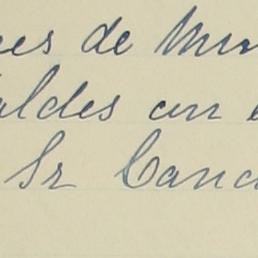 es de Mun
aldes con e
Sr Canc